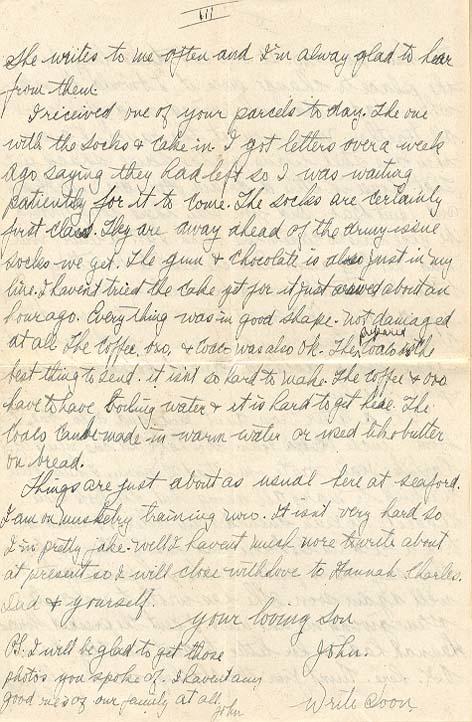 III
She writes to me often and I'm alway glad to hear
from them.
I riceived one of your parcels to day. The one
with the socks & cake in. I got letters over a week
ago saying they had left so I was waiting
patiently for it to come. The socks are certainly
first class. They are away ahead of the army issue
socks we get. The gum & chocolate is also just in my
line. I havent tried the cake yet for it just arrived about an
hour ago. Every thing was in good shape. not damaged
at all The Coffee, oxo, & Coaco was also Ok. The prepared Coaco is the
best thing to send. it isnt so hard to make. The Coffee & oxo
have to have boiling water & it is hard to get here. The
Coaco can be made in warm water or used like butter
on bread.
Things are just about as usual here at seaford.
I am on musketry training now. It isnt very hard so
I'm pretty jake. Well I havent much more to write about
at present so I will close with love to Hannah Charles.
Dad & yourself.
your loving son
John.
PS. I will be glad to get those
photos you spoke of. I havent any
good ones of our family at all.
John
Write Soon